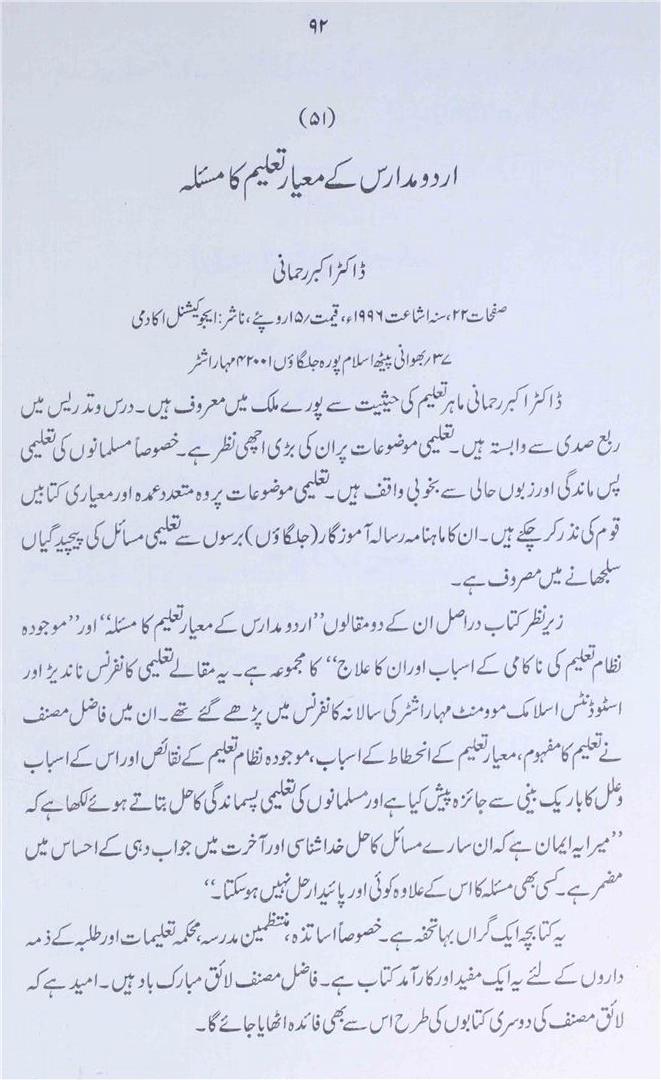 ۹۲
(۵۱)
اردو مدارس کے معیار تعلیم کا مسئلہ
ڈاکٹر اکبر رحمانی
صفحات ۲۲، سنہ اشاعت ۱۹۹۶ء، قیمت/۱۵ روپئے، ناشر: ایجوکیشنل اکادمی
۳۷/بھوانی پیٹھ اسلام پورہ جلگاؤں ۴۲۰۰۱ مہاراشٹر
ڈاکٹر اکبر رحمانی ماہر تعلیم کی حیثیت سے پورے ملک میں معروف ہیں۔ درس و تدریس میں
ربع صدی سے وابستہ ہیں۔ تعلیمی موضوعات پر ان کی بڑی اچھی نظر ہے۔ خصوصاً مسلمانوں کی تعلیمی
پس ماندگی اور زبوں حالی سے بخوبی واقف ہیں۔ تعلیمی موضوعات پر وہ متعدد عمدہ اور معیاری کتابیں
قوم کی نذر کر چکے ہیں۔ ان کا ماہنامہ رسالہ آموزگار (جلگاؤں) برسوں سے تعلیمی مسائل کی پیچیدگیاں
سلجھانے میں مصروف ہے۔
زیر نظر کتاب دراصل ان کے دو مقالوں ”اردو مدارس کے معیار تعلیم کا مسئلہ“ اور ”موجودہ
نظام تعلیم کی ناکامی کے اسباب اور ان کا علاج“ کا مجموعہ ہے۔ یہ مقالے تعلیمی کانفرنس ناندیڑ اور
اسٹوڈنٹس اسلامک موومنٹ مہاراشٹر کی سالانہ کانفرنس میں پڑھے گئے تھے۔ ان میں فاضل مصنف
نے تعلیم کا مفہوم، معیار تعلیم کے انحطاط کے اسباب، موجودہ نظام تعلیم کے نقائص اور اس کے اسباب
و علل کا باریک بینی سے جائزہ پیش کیا ہے اور مسلمانوں کی تعلیمی پسماندگی کا حل بتاتے ہوئے لکھا ہے کہ
”میرا یہ ایمان ہے کہ ان سارے مسائل کا حل خدا شناسی اور آخرت میں جواب دہی کے احساس میں
مضمر ہے۔ کسی بھی مسئلہ کا اس کے علاوہ کوئی اور پائیدار حل نہیں ہو سکتا۔“
یہ کتابچہ ایک گراں بہا تحفہ ہے۔ خصوصاً اساتذہ، منتظمین مدرسہ، محکمہ تعلیمات اور طلبہ کے ذمہ
داروں کے لئے یہ ایک مفید اور کارآمد کتاب ہے۔ فاضل مصنف لائق مبارک باد ہیں۔ امید ہے کہ
لائق مصنف کی دوسری کتابوں کی طرح اس سے بھی فائدہ اٹھایا جائے گا۔